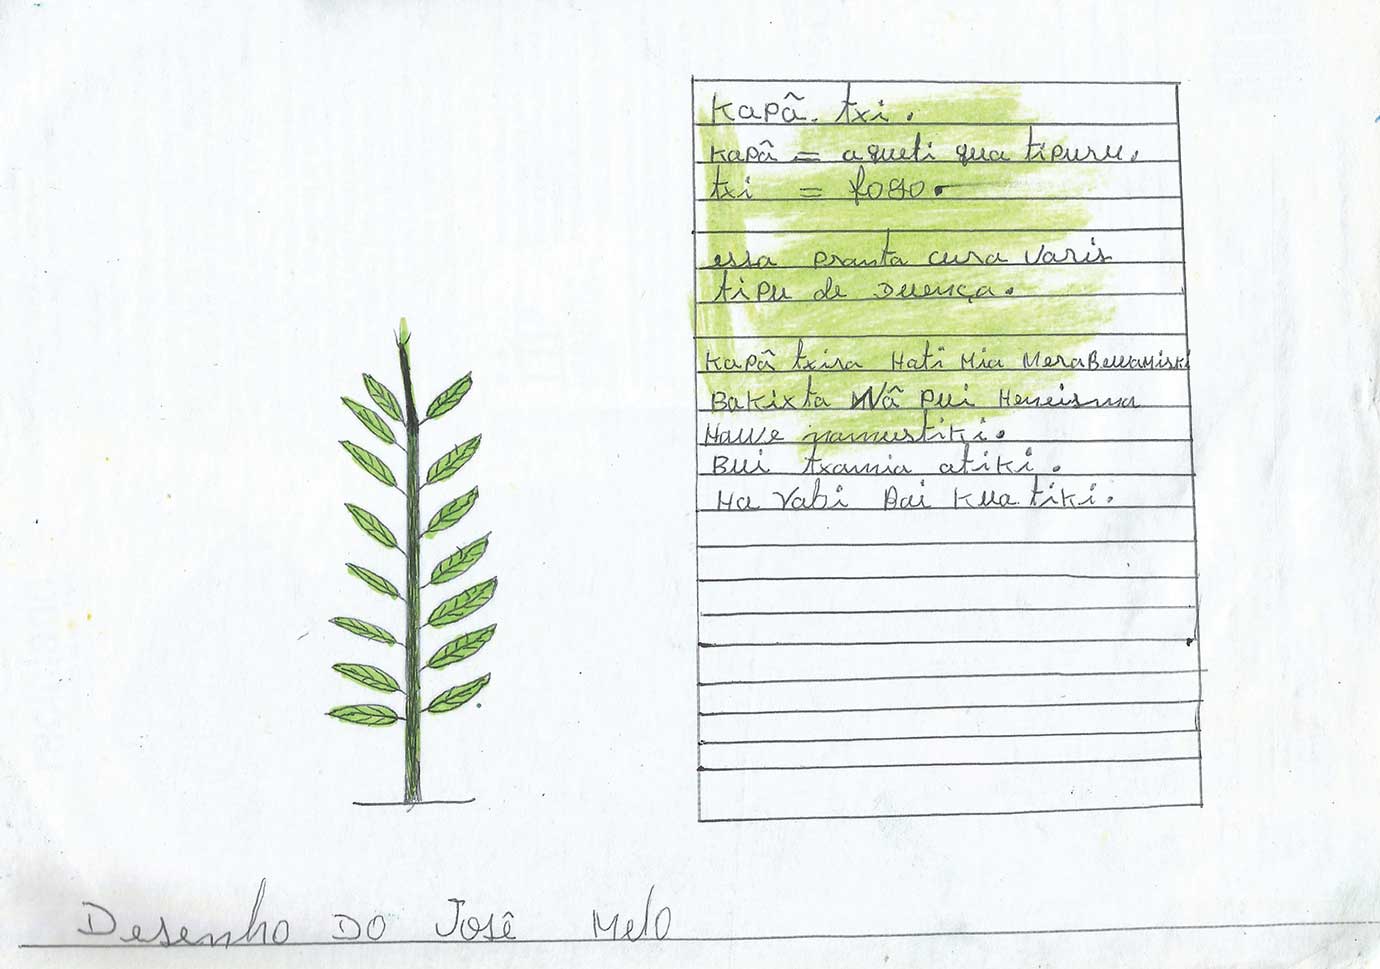 Kapã. txi.
Kapã = aqueti qua tipuru.
txi = fogo.
essa pranta cura varis
tipu de Duença.
Kapã txira Hati Mia Mera Bewamiski
Bakixta Nã pui Heneisma
Hawe namustiki.
Bui txamia atiki.
Ha Yabi Dai Kuatiki.
Desenho DO Josê Melo